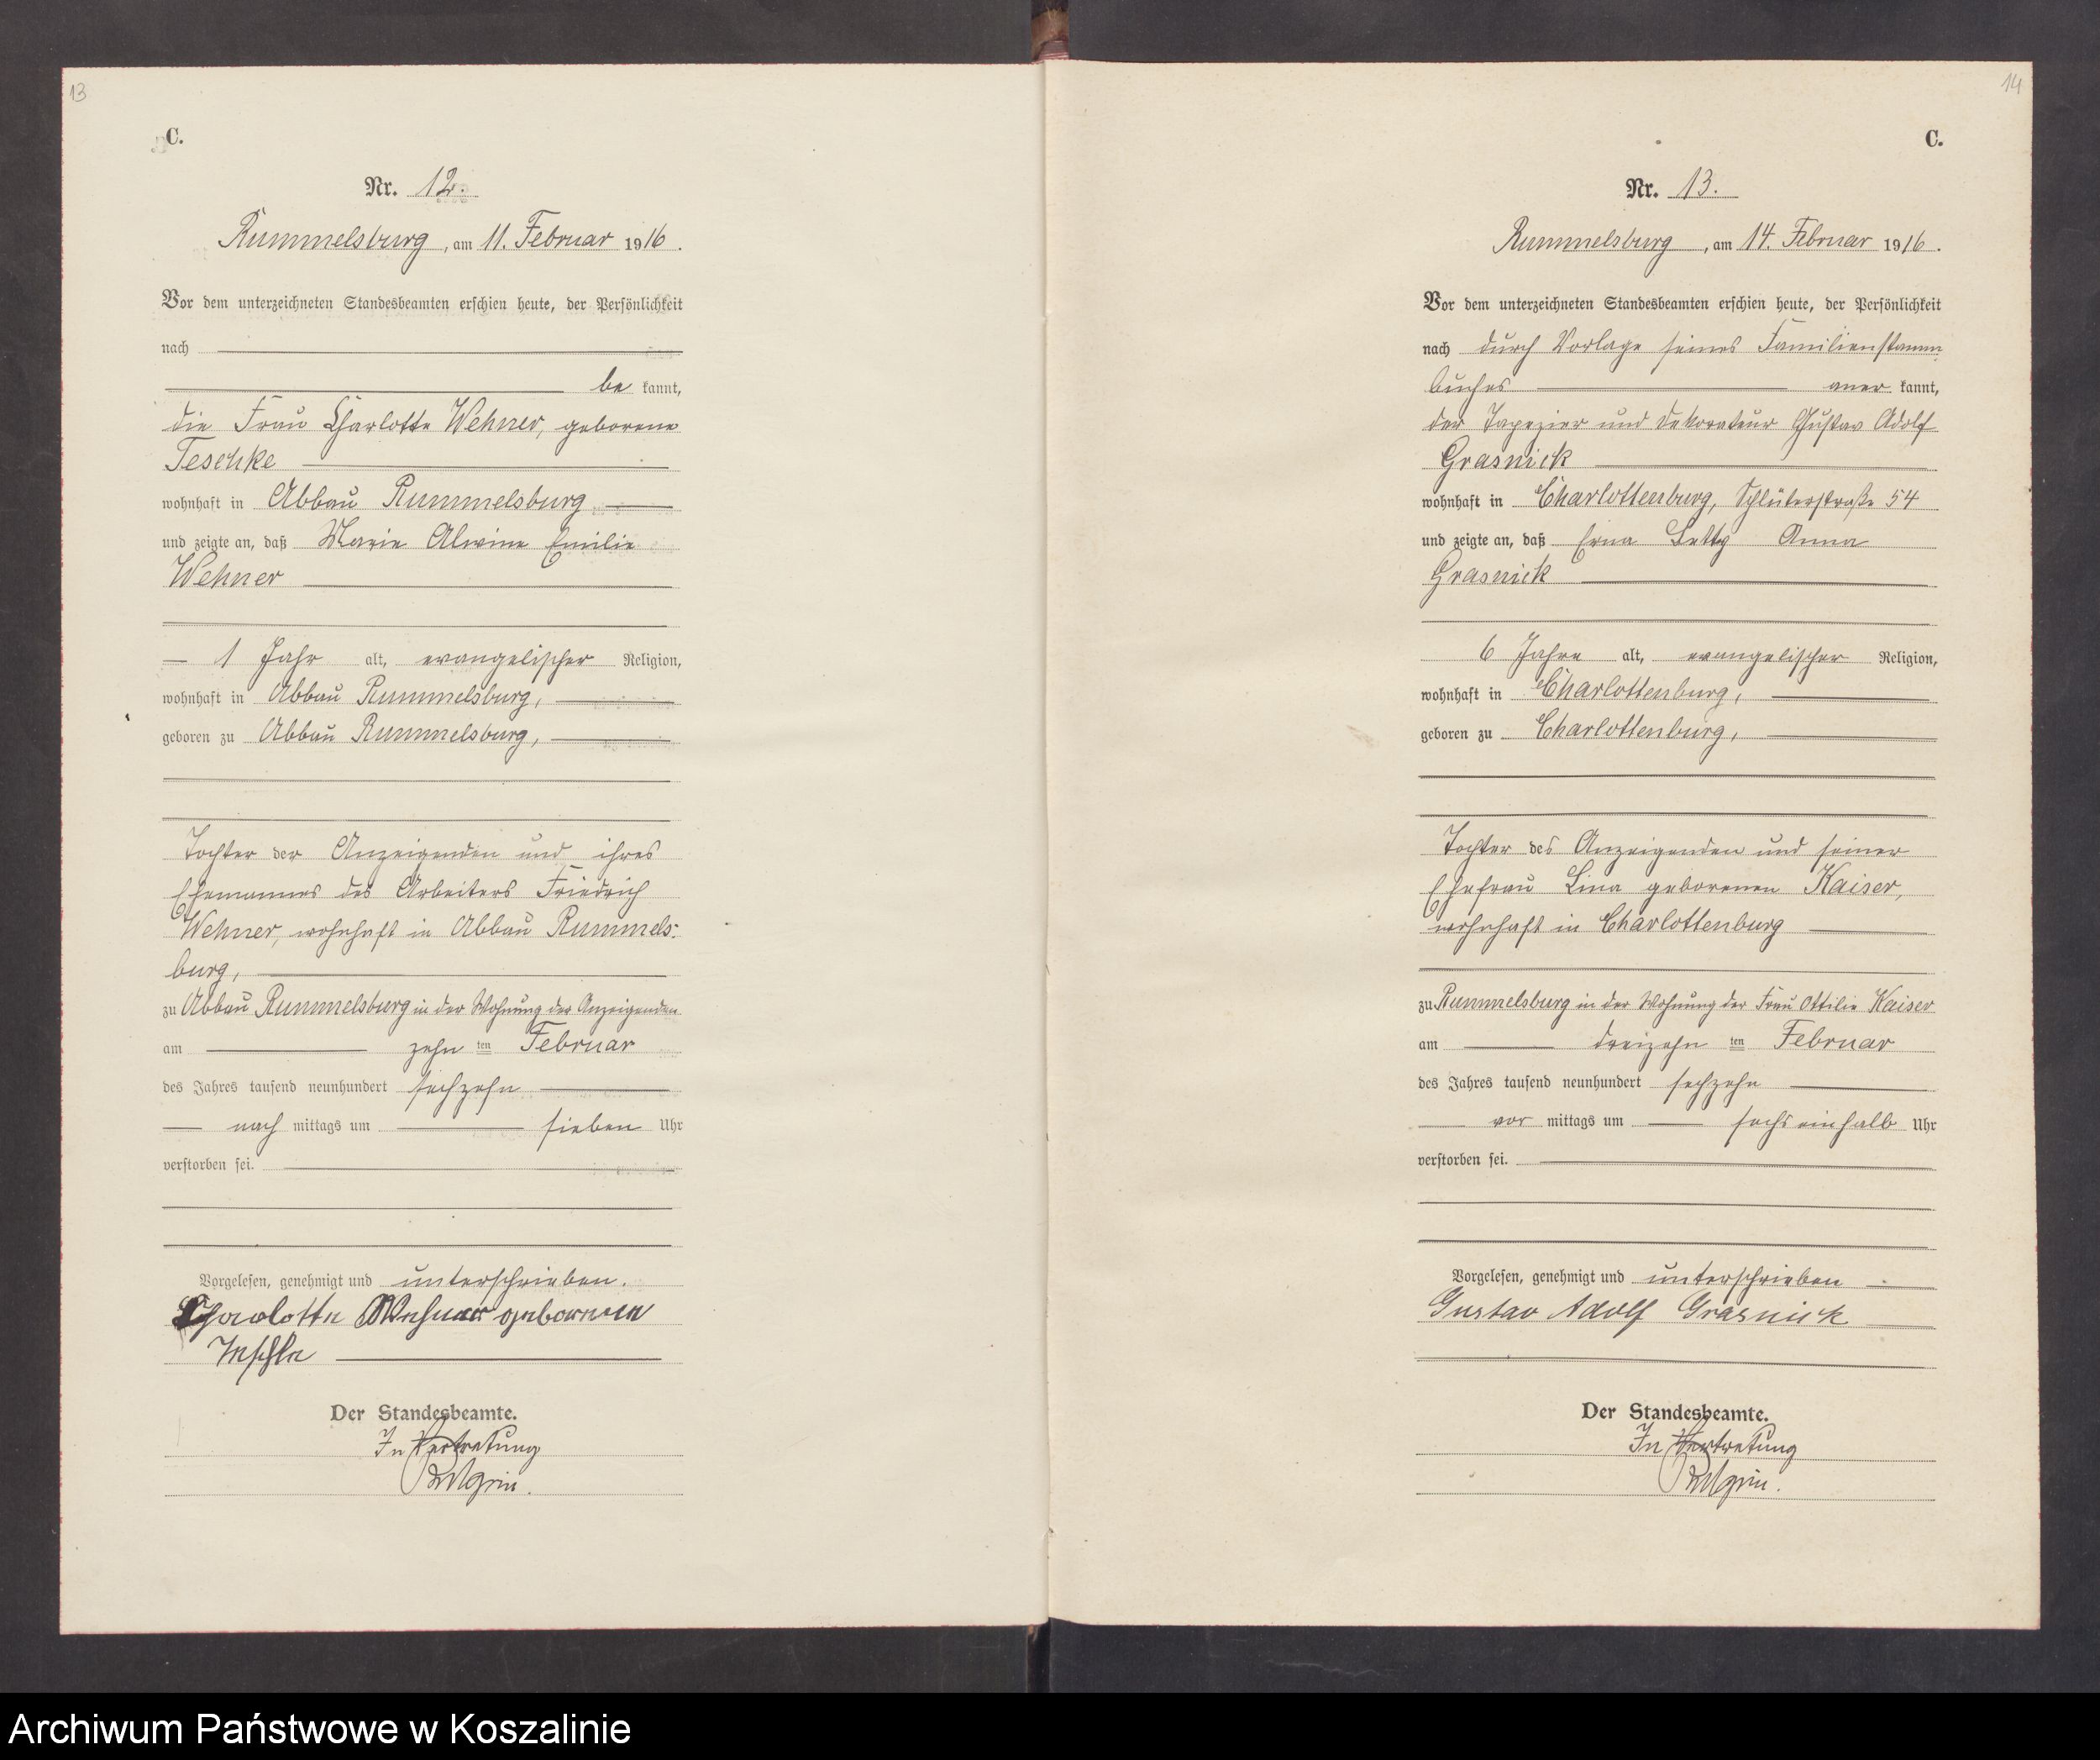 13
C.
Nr. 12.
Rummelsburg, am 11. Februar 1916.
Vor dem unterzeichneten Standesbeamten erschien heute, der Persönlichkeit
nach
be kannt,
die Frau Charlotte Wehner, geborene
Teschke
wohnhaft in Abbau Rummelsburg
und zeigte an, daß Marie Alwine Emilie
Wehner
1 Jahr alt, evangelischer Religion,
wohnhaft in Abbau Rummelsburg,
geboren zu Abbau Rummelsburg,
Tochter der Anzeigenden und ihres
Ehemannes des Arbeiters Friedrich
Wehner, wohnhaft in Abbau Rummels-
burg,
zu Abbau Rummelsburg in der Wohnung der Anzeigenden
am zehn ten Februar
des Jahres tausend neunhundert sechzehn
nach mittags um sieben Uhr
verstorben sei.
Vorgelesen, genehmigt und unterschrieben.
Charlotte Wehner geborenen
Teschke
Der Standesbeamte.
In Vertretung
14
C.
Nr. 13.
Rummelsburg, am 14. Februar 1916.
Vor dem unterzeichneten Standesbeamten erschien heute, der Persönlichkeit
nach durch Vorlage seines Familienstamm
buches aner kannt,
der Tapezier und Dekorateur Gustav Adolf
Grasnick
wohnhaft in Charlottenburg, Schlüterstraße 54
und zeigte an, daß Erna Betty Anna
Grasnick
6 Jahre alt, evangelischer Religion,
wohnhaft in Charlottenburg,
geboren zu Charlottenburg,
Tochter des Anzeigenden und seiner
Ehefrau Lina geborenen Kaiser,
wohnhaft in Charlottenburg
zu Rummelsburg in der Wohnung der Frau Ottilie Kaiser
am dreizehn ten Februar
des Jahres tausend neunhundert sechzehn
vor mittags um sechs einhalb Uhr
verstorben sei.
Vorgelesen, genehmigt und unterschrieben
Gustav Adolf Grasnick
Der Standesbeamte.
In Vertretung
Archiwum Państwowe w Koszalinie